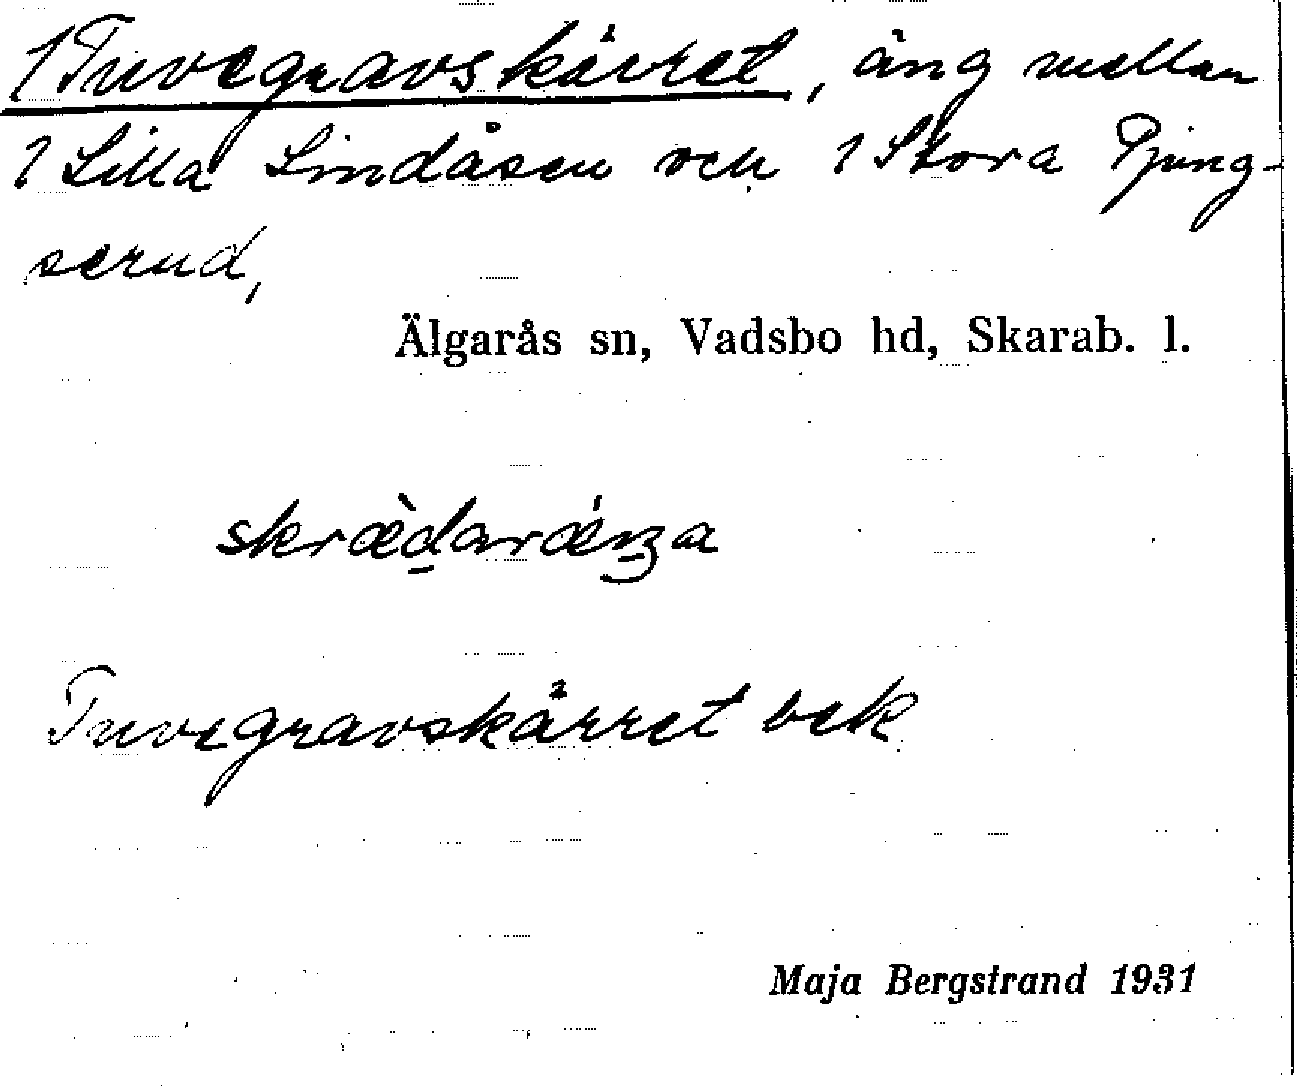 1 Tuvegravskärret, äng mellan
1 Lilla Lindåsen och 1 Stora Pjung-
serud,
Älgarås sn, Vadsbo hd, Skarab. l.
skræ̀d̠aræ̇nza
Tuvegravskärret bek
Maja Bergstrand 1931